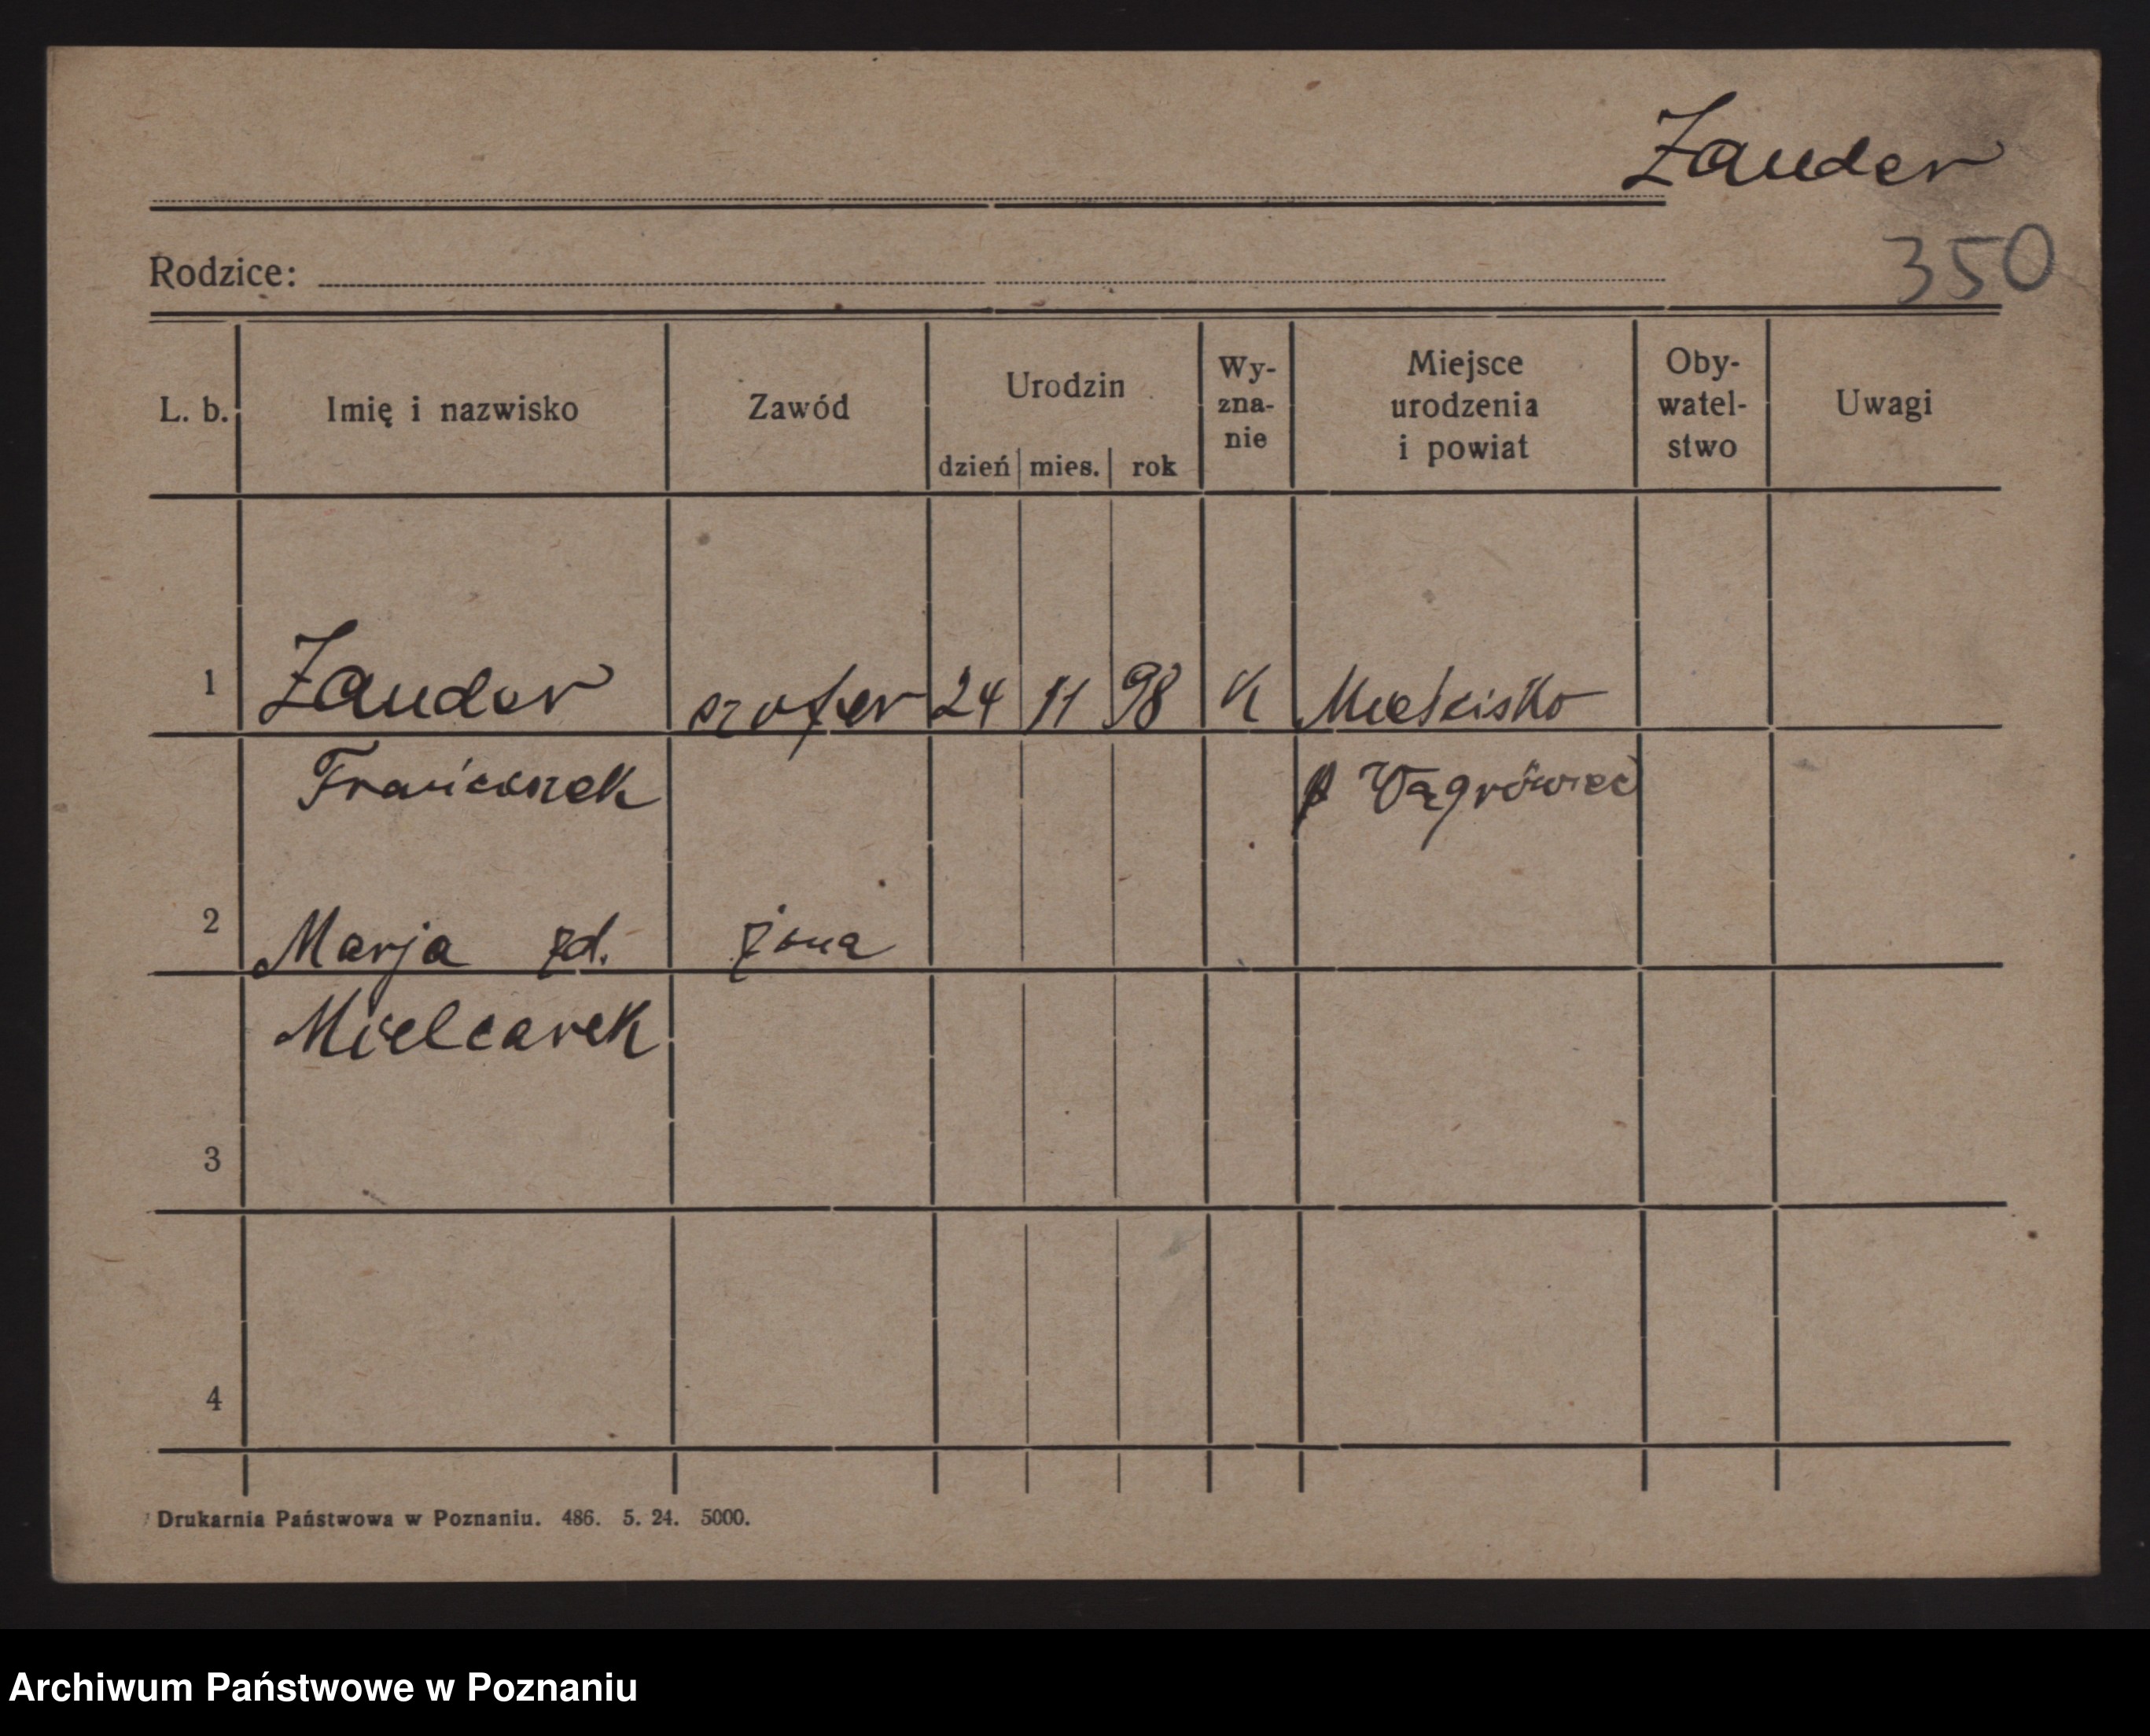 Zander
350
Rodzice:
L. b. Imię i nazwisko Zawód Urodzin dzień mies. rok Wy-zna-nie Miejsce urodzenia i powiat Oby-watel-stwo Uwagi
1 Zander szofer 24 11 98 K Mieścisko
Franciszek p Wągrówiec
2 Marja zd. żona
Mielcarek
3
4
Drukarnia Państwowa w Poznaniu. 486. 5. 24. 5000.
Archiwum Państwowe w Poznaniu